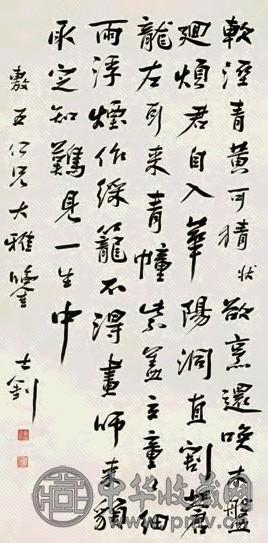 軟溼青黃可猜狀欲烹還喚木盤
廻煩君自入華陽洞直割乖
龍左耳來青幢紫蓋立童々細
雨浮煙作綵籠不得畫師來貌
取定知難見一生中
敷五仁兄大雅
士釗
中华收藏网